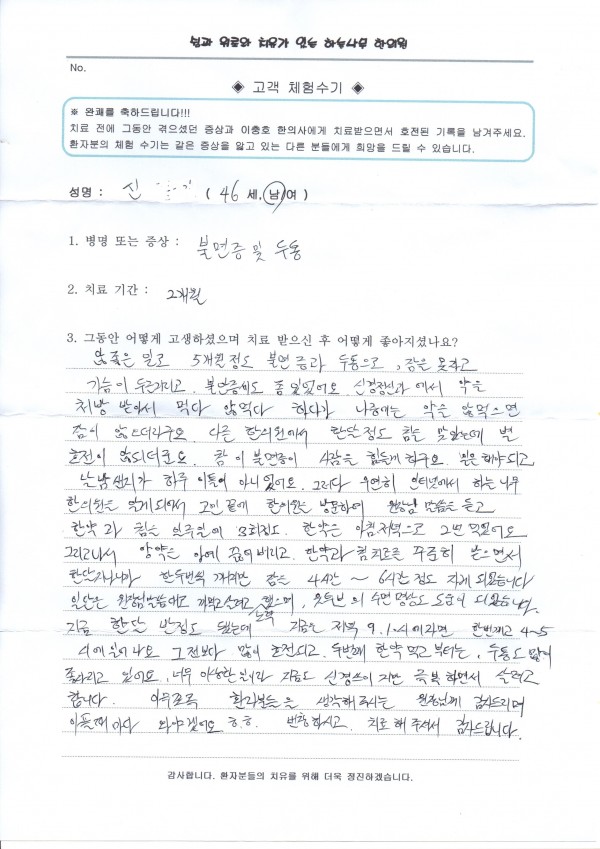 쉼과 위로와 치유가 있는 하늘나무 한의원
No.
◈ 고객 체험수기 ◈
※ 완쾌를 축하드립니다!!!
치료 전에 그동안 겪으셨던 증상과 이충호 한의사에게 치료받으면서 호전된 기록을 남겨주세요.
환자분의 체험 수기는 같은 증상을 앓고 있는 다른 분들에게 희망을 드릴 수 있습니다.
성명 : 신 ( 46 세, 남/여 )
1. 병명 또는 증상 : 불면증 및 두통
2. 치료 기간 : 2개월
3. 그동안 어떻게 고생하셨으며 치료 받으신 후 어떻게 좋아지셨나요?
않좋은 일로 5개월정도 불면증과 두통으로, 잠을 못자고
가슴이 두근거리고, 불안증세도 좀 있었어요. 신경정신과에서 약을
처방 받아서 먹다 않먹다 하다가 나중에는 약을 않먹으면
잠이 않오더라구요. 다른 한의원에서 한달정도 침을 맞았는데 별
호전이 않되더군요. 참 이 불면증이 사람을 힘들게 하구요. 일은 해야되고
난감한지가 하루 이틀이 아니었어요. 그러다 우연히 인터넷에서 하늘나무
한의원을 알게되어서 고민 끝에 한의원을 방문하여 원장님 말씀을 듣고
한약과 침을 일주일에 3회정도. 한약은 아침저녁으로 2번 먹었어요
그리고나서 양약은 아예 끊어버리고. 한약과 침 치료를 꾸준히 받으면서
한달지나니까 한두번씩 깨지만 잠을 4시간 ~ 6시간 정도 자게 되었습니다
일단은 원장님말씀대로 지키고살려고 노력 했으며, 유투브의 수면명상도 도움이 되었습니다.
지금 한달 반정도 됐는데 지금은 저녁 9, 10시에 자면 한번깨고 4~5
시에 일어나요 그전보다 많이 호전되고. 두번째 한약 먹고 부터는, 두통도 많이
좋아지고 있어요. 너무 이상한 일이라 지금도 신경쓰이지만 극복하면서 살려고
합니다. 아무쪼록 환자분들을 생각해주시는 원장님께 감사드리며
아플때마다 와야겠어요 ㅎㅎ. 번창하시고. 치료해 주셔서 감사드립니다.
감사합니다. 환자분들의 치유를 위해 더욱 정진하겠습니다.